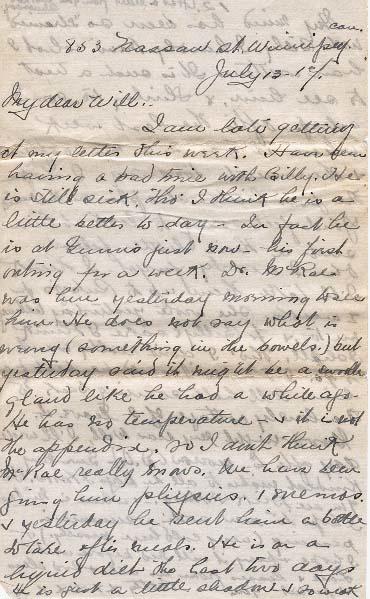 Can.
853 Nassau St. Winnipeg.
July 13-17.
My dear Will:.
I am late getting
at my letter this week. Have been
having a bad time with Billy. He
is still sick, tho' I think he is a
little better to-day - In fact he
is at Tennis just now - his first
outing for a week. Dr. McRae
was here yesterday morning to see
him. He does not say what is
wrong (something in the bowels.) but
yesterday said it might be a swollen
gland like he had a while ago.
He has no temperature - & it is not
the appendix. So I dont think
McRae really knows. We have been
giving him physics, & enemas.
& yesterday he sent him a bottle
to take after meals. He is on a
liquid diet the last two days
He is just a little shadow & so weak